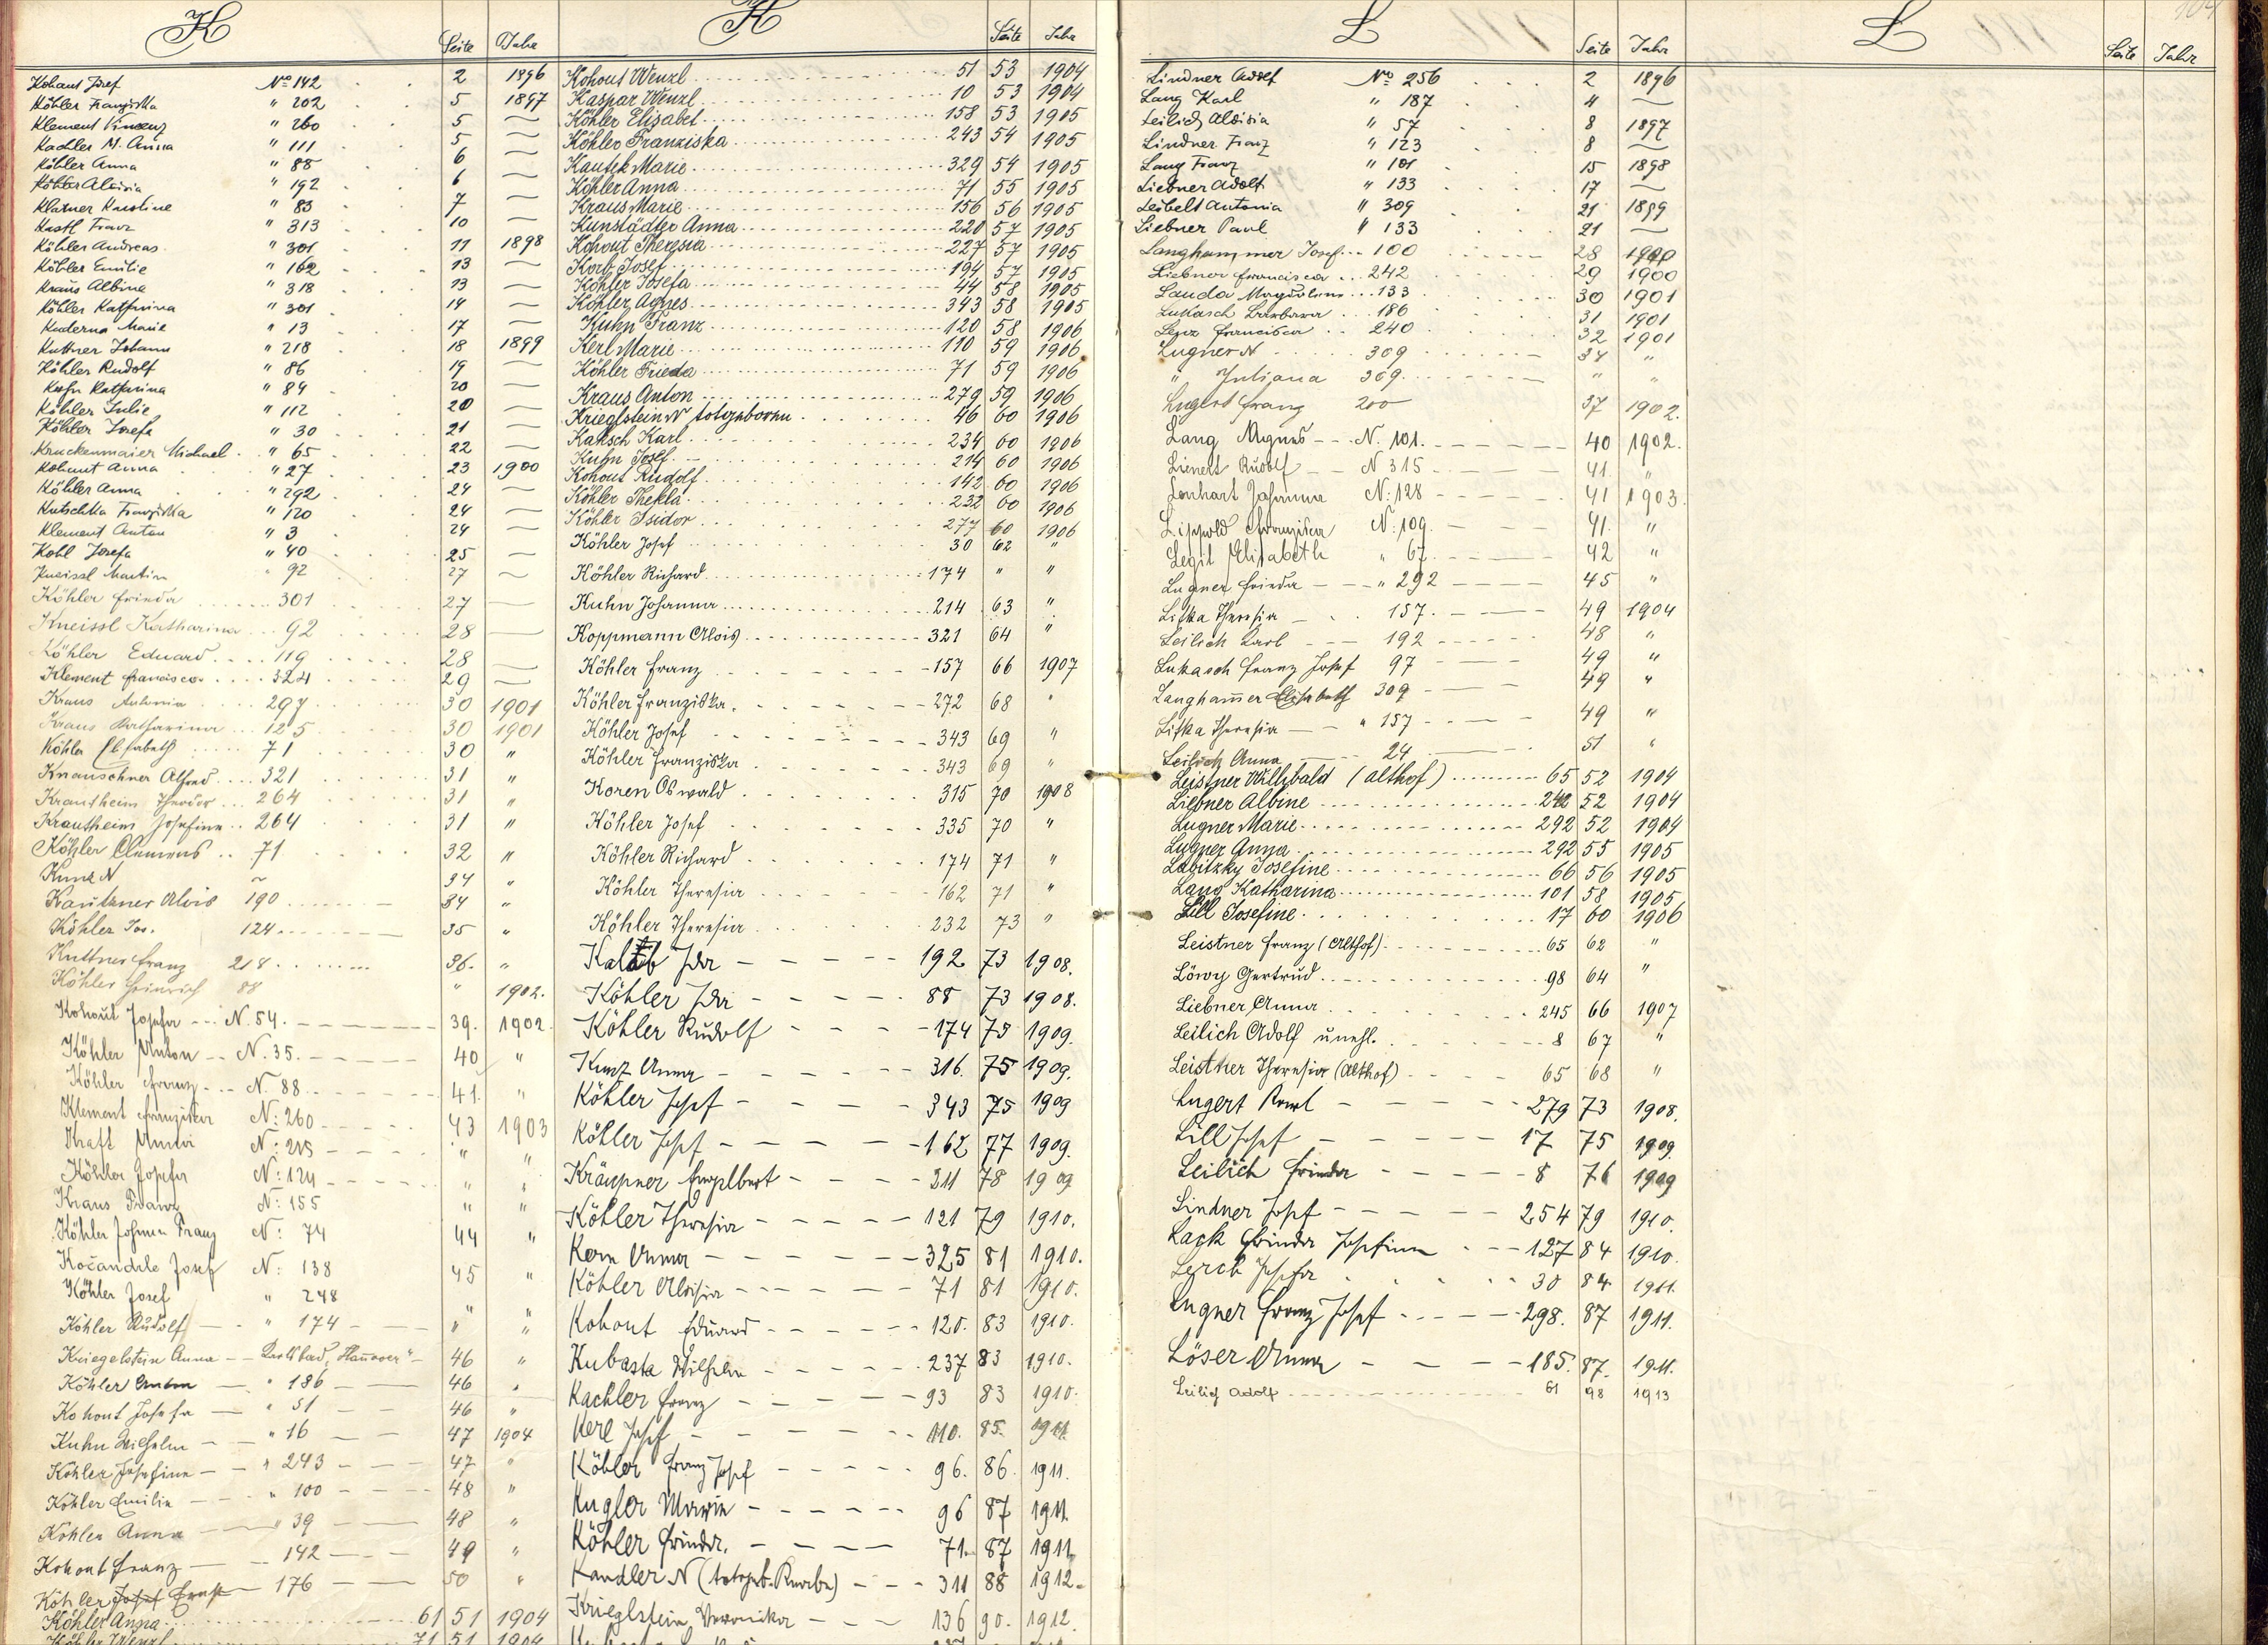 K Seite Jahr
Kohaut Josef Nº 142 2 1896
Köhler Franziska " 202 5 1897
Klement Vincenz " 260 5 —
Kachler M. Anna " 111 5 —
Köhler Anna " 88 6 —
Köhler Aloisia " 192 6 —
Klatner Karoline " 83 7 —
Kastl Franz " 313 10 —
Köhler Andreas " 301 11 1898
Köhler Emilie " 162 13 —
Kraus Albine " 318 13 —
Köhler Katharina " 301 14 —
Kuderna Marie " 13 17 —
Kuttner Johann " 218 18 1899
Köhler Rudolf " 86 19 —
Katharina " 84 20 —
Köhler Julie " 112 20 —
Köhler Josefa " 30 21 —
Kruckenmaier Michael " 65 22 —
Kohaut Anna " 27 23 1900
Köhler Anna " 292 24 —
Kutschka Franziska " 120 24 —
Klement Anton " 3 24 —
Kohl Josefa " 40 25 —
Kneissl Martin " 92 27 —
Köhler Frieda 301 27 —
Kneissl Katharina 92 28 —
Köhler Eduard 119 28 —
Klement Francisca 324 29 —
Kraus Antonia 297 30 1901
Kraus Katharina 125 30 1901
Köhler Elisabeth 71 30 "
Knauschner Alfred 321 31 "
Krautheim Theodor 264 31 "
Krautheim Josefine 264 31 "
Köhler Clemens 71 32 "
Kunz N ~ 34 "
Kautzner Alois 190 34 "
Köhler Jos. 124 35 "
Kuttner Franz 218 36. "
Köhler Heinrich 88 " 1902.
Kohout Josefa N. 54. 39. 1902
Köhler Anton N. 35. 40 "
Köhler Franz N. 88. 41. "
Klement Franziska N: 260 43 1903
Kraft Maria N: 215 " "
Köhler Josefa N: 124 " "
Kraus Franz N: 155 " "
Köhler Johann Franz N: 74 44 "
Kočandrle Josef N: 138 45 "
Köhler Josef " 248 " "
Köhler Rudolf " 174 " "
Kriegelstein Anna Karlsbad "Hannover" 46 "
Köhler Anton " 186 46 "
Kohout Josefa " 51 46 "
Kuhn Wilhelm " 16 47 1904
Köhler Josefine " 243 47 "
Köhler Emilie " 100 48 "
Köhler Anna " 39 48 "
Kohout Franz 142 49 "
Köhler Josef Ernst 176 50 "
Köhler Anna 61 51 1904
Köhler Wenzl 71 51 1904
K Seite Jahr
Kohout Wenzl 51 53 1904
Kaspar Wenzl 10 53 1904
Köhler Elisabet 158 53 1905
Köhler Franziska 243 54 1905
Kautek Marie 329 54 1905
Köhler Anna 71 55 1905
Kraus Marie 156 56 1905
Kunstädter Anna 220 57 1905
Kohout Theresia 227 57 1905
Korb Josef 194 57 1905
Köhler Josefa 44 58 1905
Köhler Agnes 343 58 1905
Kuhn Franz 120 58 1906
Kerl Marie 110 59 1906
Köhler Frieda 71 59 1906
Kraus Anton 279 59 1906
Krieglstein N totgeboren 46 60 1906
Kaksch Karl 234 60 1906
Kuhn Josef 214 60 1906
Kohout Rudolf 142 60 1906
Köhler Thekla 232 60 1906
Köhler Isidor 277 60 1906
Köhler Josef 30 62 "
Köhler Richard 174 " "
Kuhn Johanna 214 63 "
Koppmann Alois 321 64 "
Köhler Franz 157 66 1907
Köhler Franziska 272 68 "
Köhler Josef 343 69 "
Köhler Franziska 343 69 "
Koren Oswald 315 70 1908
Köhler Josef 335 70 "
Köhler Richard 174 71 "
Köhler Theresia 162 71 "
Köhler Theresia 232 73 "
Ida 192 73 1908.
Köhler Ida 88 73 1908.
Köhler Rudolf 174 75 1909.
Kunz Anna 316. 75 1909.
Köhler Josef 343 75 1909
Köhler Josef 162 77 1909.
Kräupner Engelbert 311 78 1909
Köhler Theresia 121 79 1910.
Korn Anna 325 81 1910.
Köhler Aloisia 71 81 1910.
Kohout Eduard 120. 83 1910.
Kubasta Wilhelm 237 83 1910.
Kachler Franz 93 83 1910.
Kerl Josef 110. 85. 1911.
Köhler Franz Josef 96. 86. 1911.
Kugler Marie 96 87 1911
Köhler Frieda. 71. 87 1911
Kandler N (totgeb. Knabe) 311 88 1912.
Krieglstein Veronika 136 90. 1912.
L Seite Jahr
Lindner Adolf Nº 256 2 1896
Lang Karl " 187 4 —
Leilich Aloisia " 57 8 1897
Lindner Franz " 123 8 —
Lang Franz " 101 15 1898
Liebner Adolf " 133 17 —
Leibelt Antonia " 309 21 1899
Liebner Paul " 133 21 —
Langhammer Josef 100 28 1900
Liebner Francisca 242 29 1900
Lauda Magdalena 133 30 1901
Lukasch Barbara 186 31 1901
Lenz Francisca 240 32 1901
Lugner N 309 34 "
" Juliana 309. " "
Lugert Franz 200 37 1902.
Lang Agnes N. 101. 40 1902.
Lienert Rudolf N 315 41. "
Lenhart Johanna N: 128 41 1903.
Lippold Franziska N: 109. 41. "
Legit Elisabeth " 67. 42 "
Lugner Frieda " 292 45 "
Lifka Theresia 157. 49 1904
Leilich Karl 192 48 "
Lukasch Franz Josef 97 49 "
Langham̄er Elisabeth 309 49 "
Lifka Theresia " 157 49 "
Leilich Anna 24 51 "
Leistner Willibald (Althof) 65 52 1904
Liebner Albine 242 52 1904
Lugner Marie 292 52 1904
Lugner Anna 292 55 1905
Labitzky Josefine 66 56 1905
Lang Katharina 101 58 1905
Lill Josefine 17 60 1906
Leistner Franz (Althof) 65 62 "
Löwy Gertrud 98 64 "
Liebner Anna 245 66 1907
Leilich Adolf unehl. 8 67 "
Leistner Theresia (Althof) 65 68 "
Lugert Karl 279 73 1908.
Lill Josef 17 75 1909.
Leilich Frieda 8 76 1909
Lindner Josef 254 79 1910.
Lack Frieda Josefine 127 84 1910.
Lerch Josefa 30 84 1911.
Lugner Franz Josef 298. 87 1911.
Löser Anna 185. 87. 1911.
Leilich Adolf 61 98 1913
L Seite Jahr
104